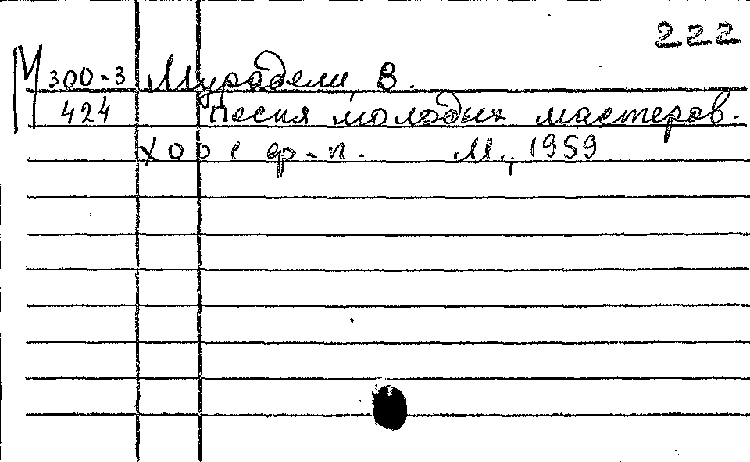 222
М 300-3 Мурадели, В.
424 Песня молодых мастеров.
Хор с ф-п. М., 1959